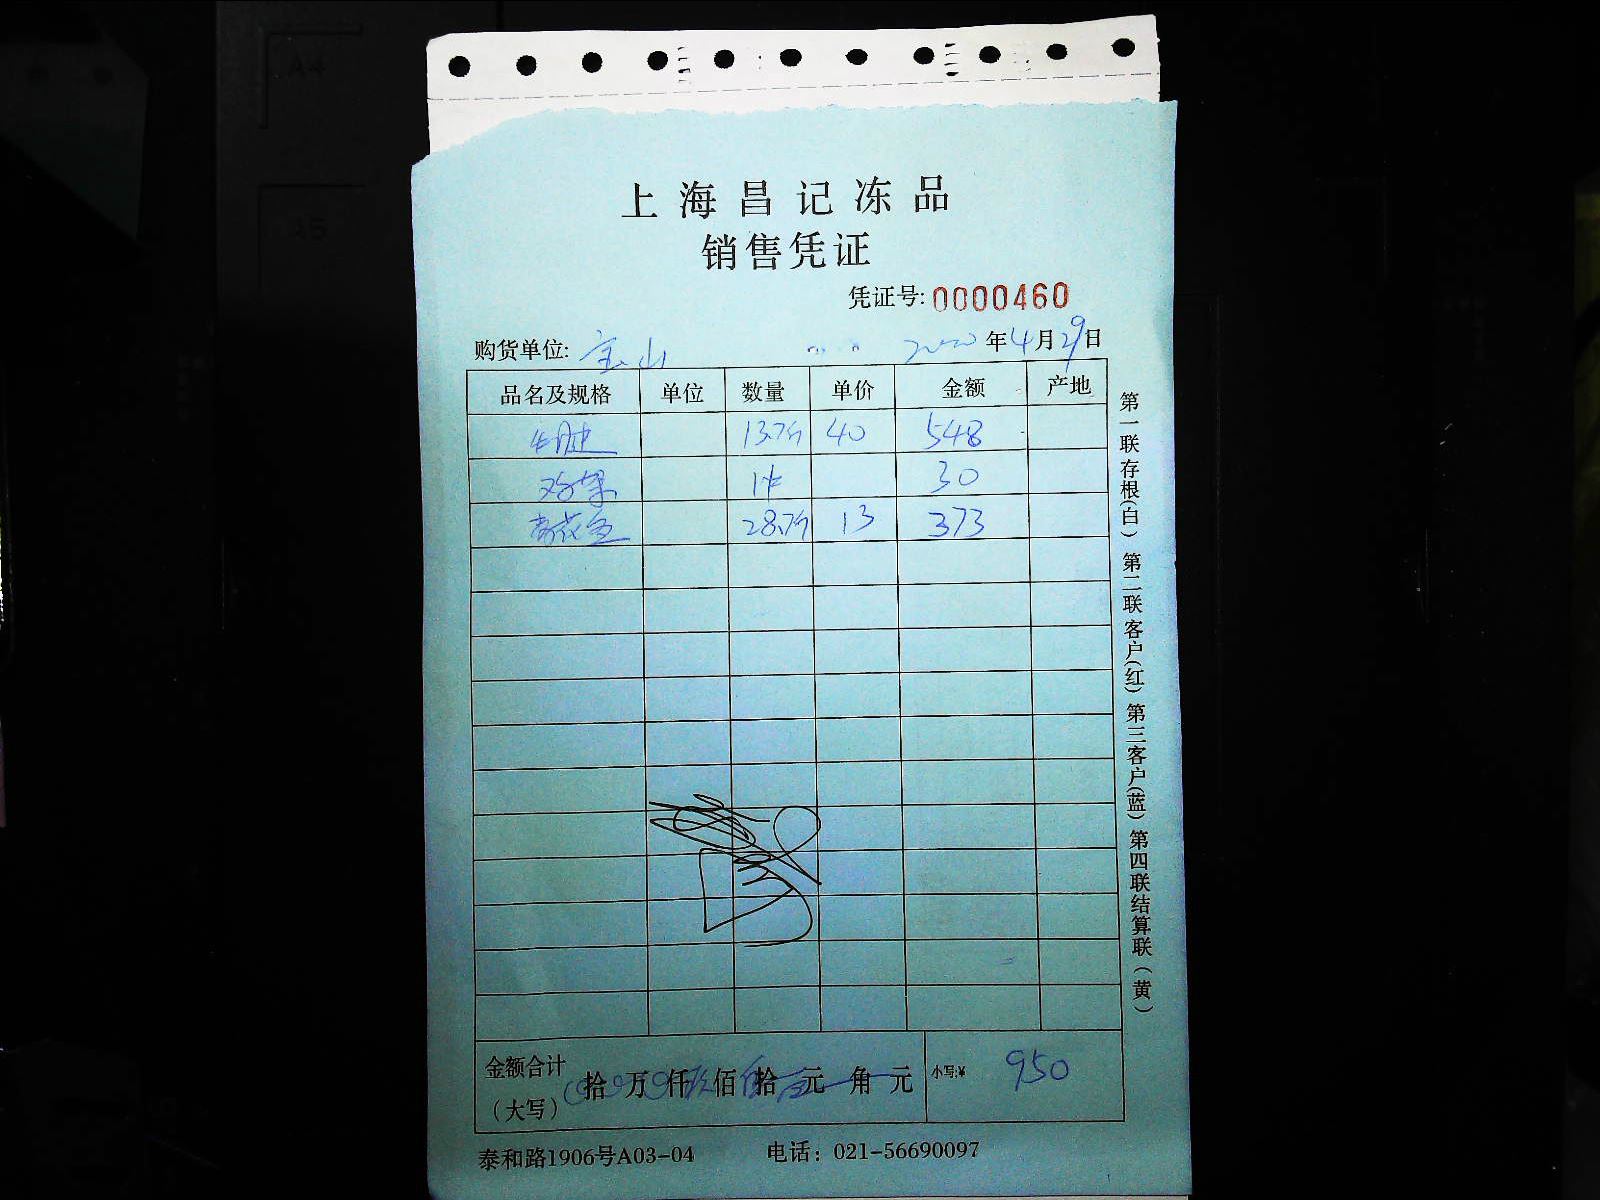 上海昌记冻品
销售凭证
凭证号: 0000460
购货单位: 宝山 2020年4月29日
品名及规格 单位 数量 单价 金额 产地
牛腱 13.7斤 40 548
1件 30
28.7斤 13 373
金额合计
(大写)
拾 万 仟 佰 拾 元 角 元 小写:¥ 950
泰和路1906号A03-04 电话: 021-56690097
第一联存根(白) 第二联客户(红) 第三客户(蓝) 第四联结算联(黄)